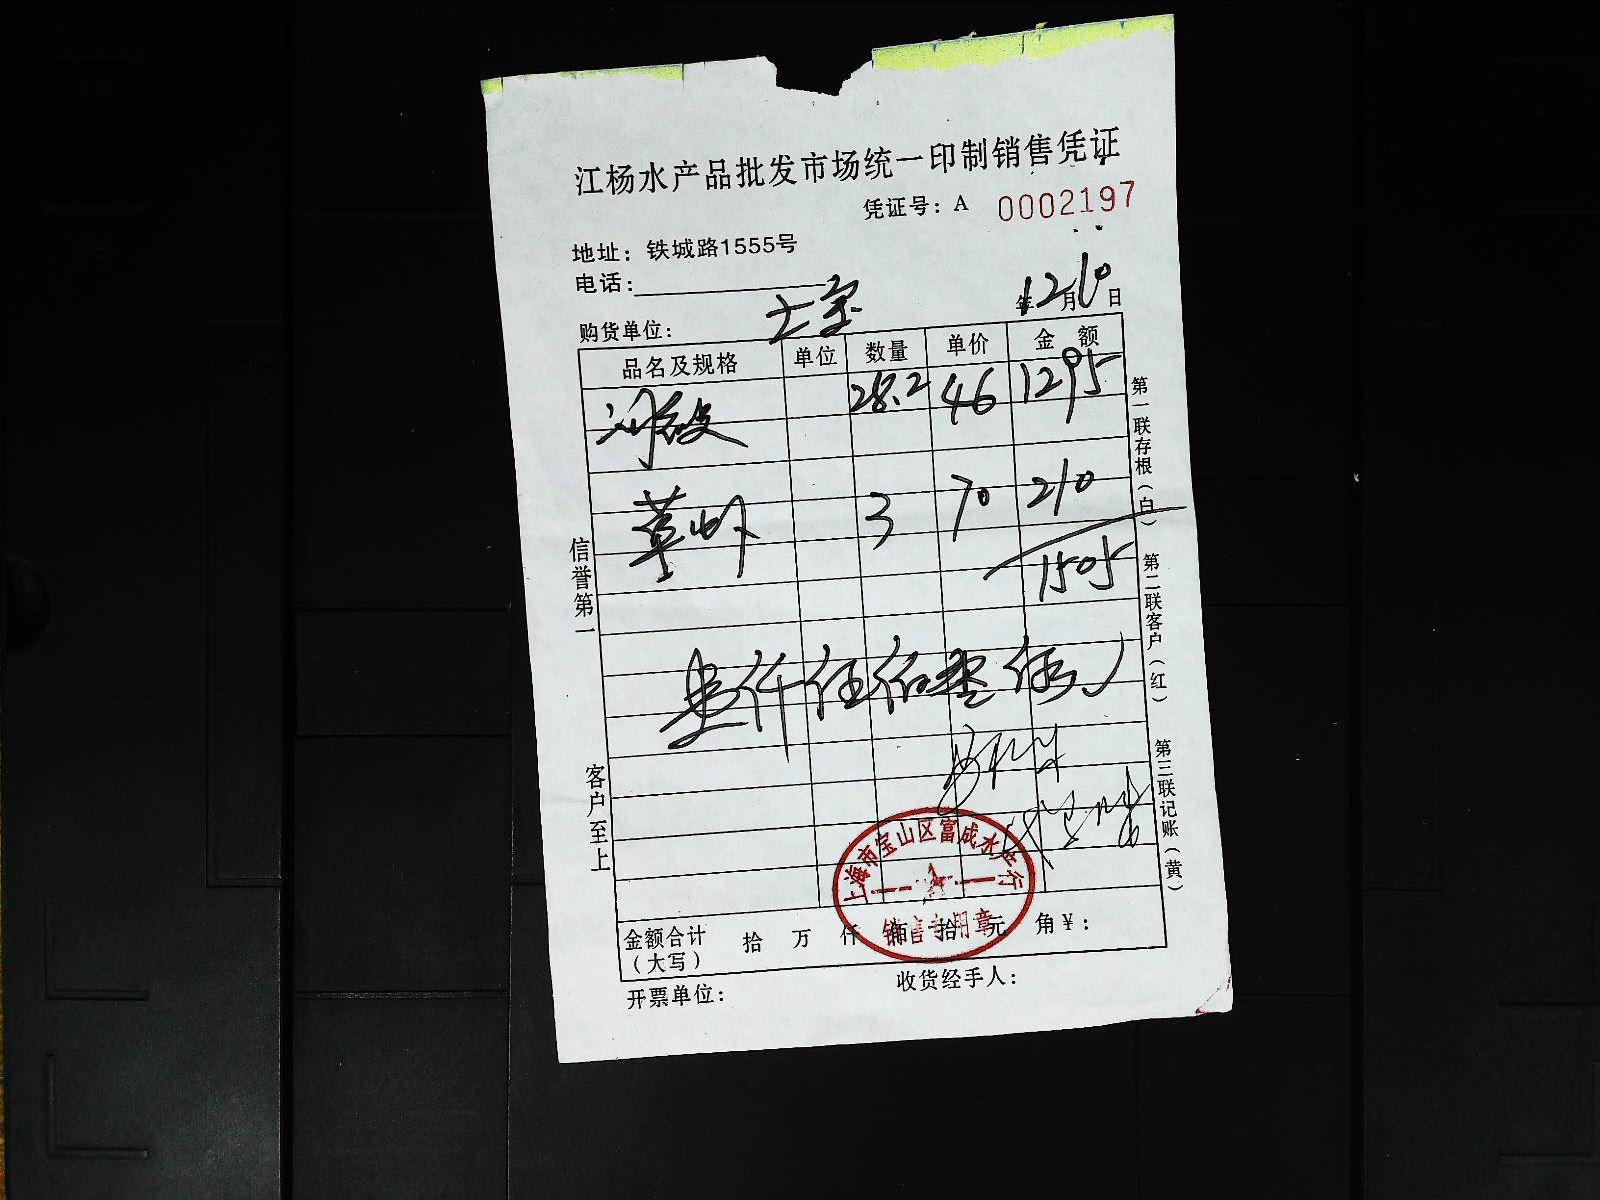 江杨水产品批发市场统一印制销售凭证
凭证号：A 0002197
地址：铁城路1555号
电话：
年12月10日
购货单位：
品名及规格 单位 数量 单价 金额
28.2 46 1295
草虾 3 70 210
1505
壹仟伍佰零伍
金额合计（大写） 拾 万 仟 佰 拾 元 角 ¥：
开票单位： 收货经手人：
信誉第一
客户至上
第一联存根（白）
第二联客户（红）
第三联记账（黄）
上海市宝山区富成水产行
销售专用章